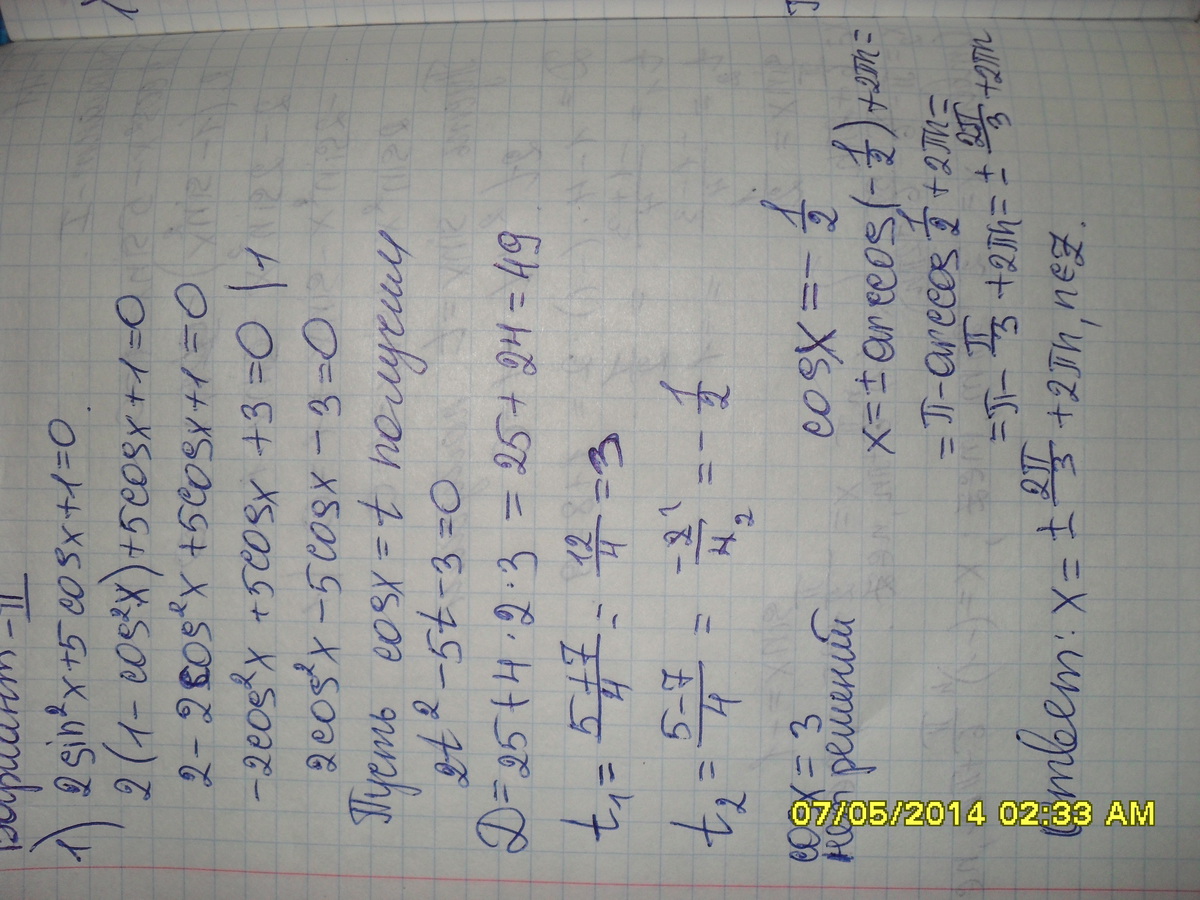 Вариант-II
1) 2sin²x+5cosx+1=0.
2(1-cos²x)+5cosx+1=0
2-2cos²x+5cosx+1=0
-2cos²x+5cosx+3=0 |1
2cos²x-5cosx-3=0
Пусть cosx=t получим
2t²-5t-3=0
D=25+4·2·3=25+24=49
t₁=\frac{5+7}{4}=\frac{12}{4}=3
t₂=\frac{5-7}{4}=\frac{-2^1}{4_2}=-\frac{1}{2}
cosx=3
нет решений
cosx=-\frac{1}{2}
x=±arccos(-\frac{1}{2})+2πn=
=π-arccos\frac{1}{2}+2πn=
=π-\frac{π}{3}+2πn=±\frac{2π}{3}+2πn
Ответ: x=±\frac{2π}{3}+2πn, n∈Z.
07/05/2014 02:33 AM